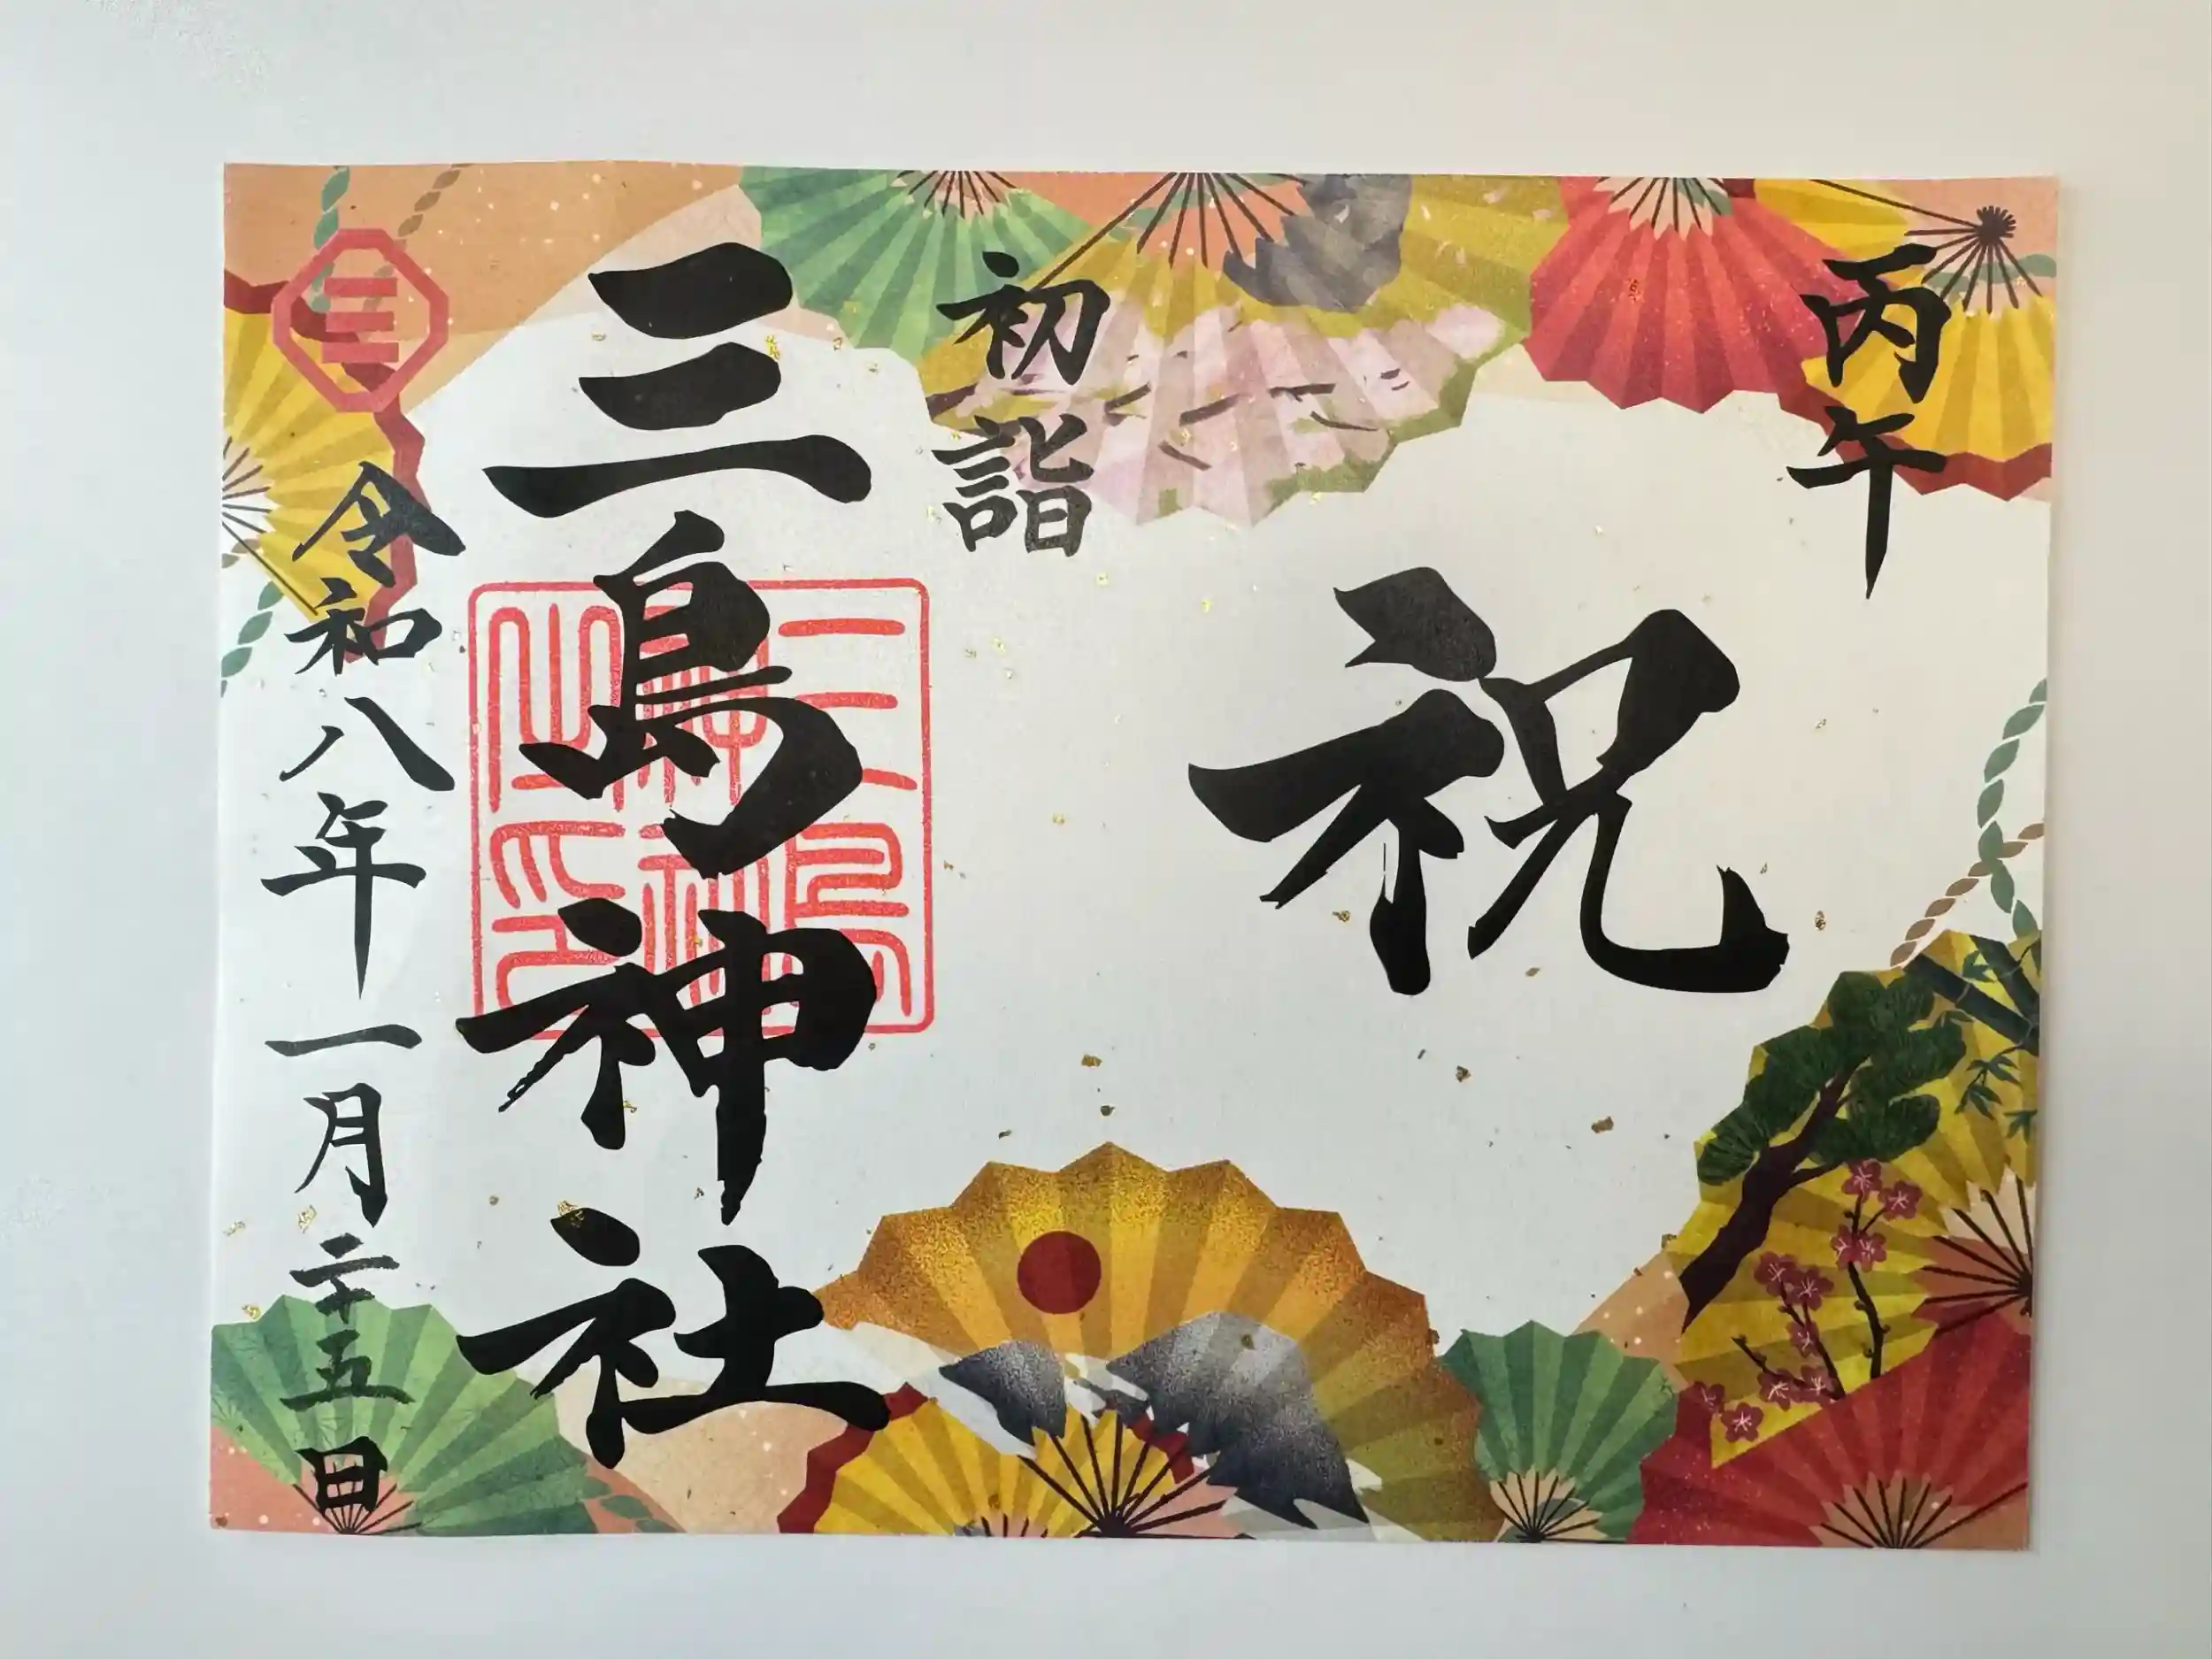 丙午
祝
初詣
三島神社
三
三島神社之印
令和八年一月二十五日